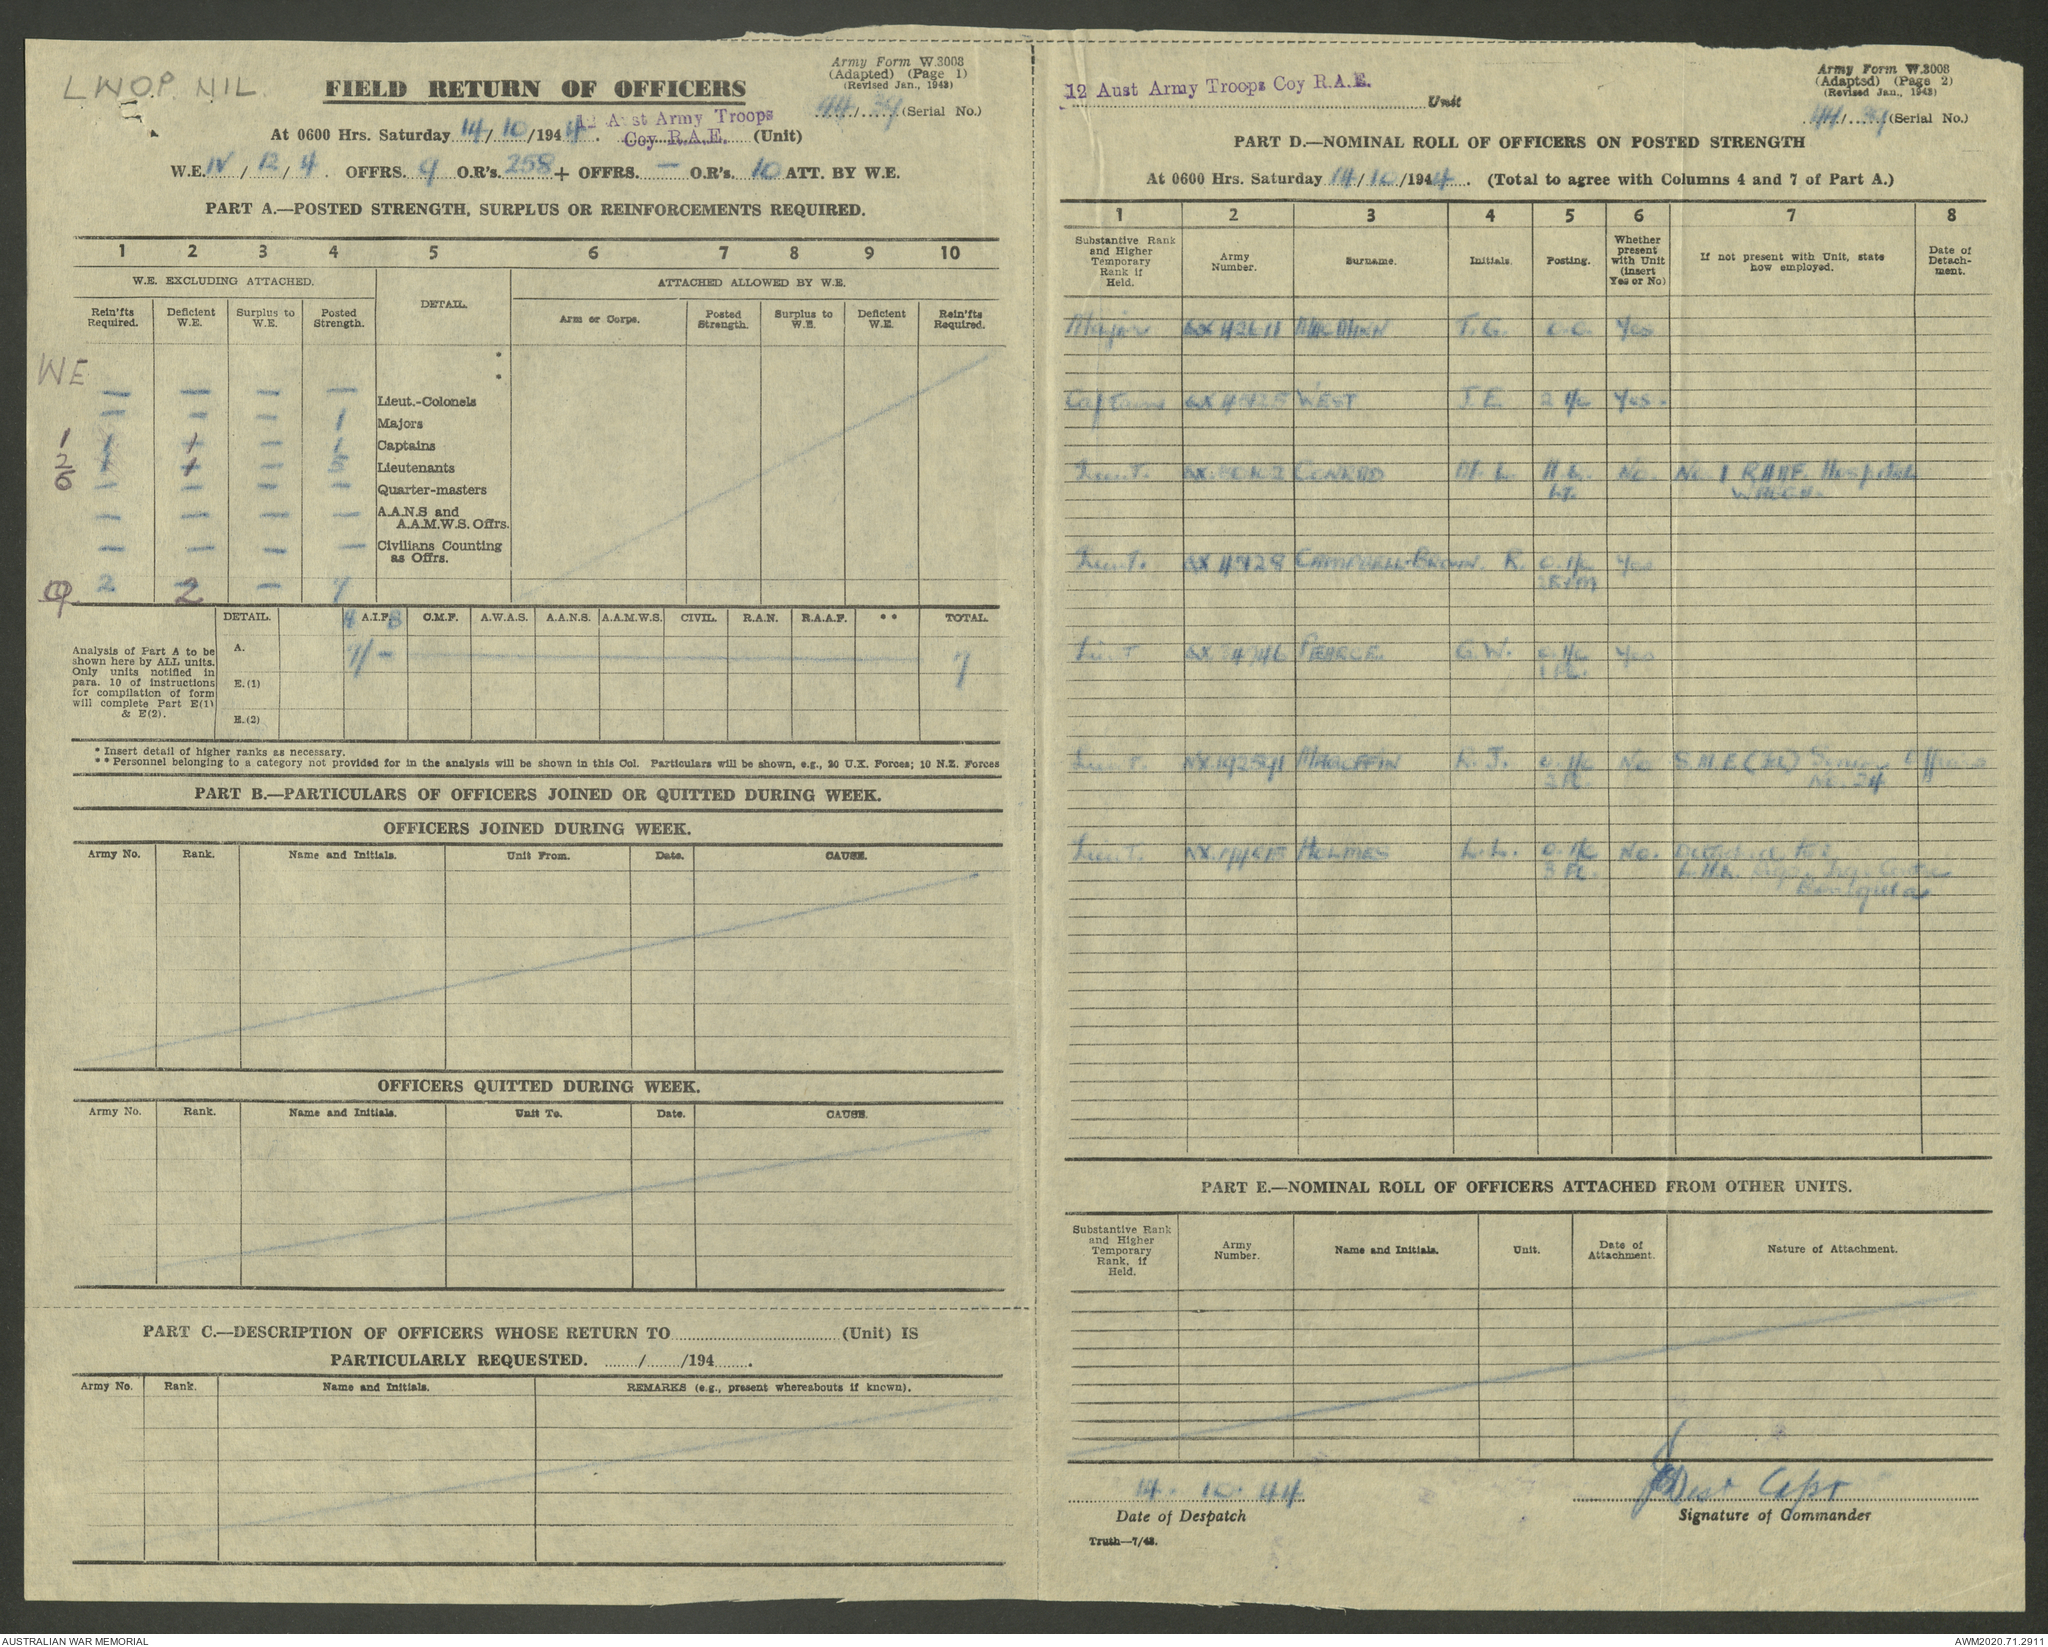 LWOP. NIL.
Army Form W.3008
(Adapted) (Page 1)
(Revised Jan., 1943)
FIELD RETURN OF OFFICERS
44/39 (Serial No.)
At 0600 Hrs. Saturday 14/10/1944. 12 Aust Army Troops Coy R.A.E. (Unit)
W.E. IV/12/4. OFFRS. 9 O.R's. 258 + OFFRS. — O.R's. 10 ATT. BY W.E.
PART A.—POSTED STRENGTH, SURPLUS OR REINFORCEMENTS REQUIRED.
1 2 3 4 5 6 7 8 9 10
W.E. EXCLUDING ATTACHED. DETAIL. ATTACHED ALLOWED BY W.E.
Rein'fts Required. Deficient W.E. Surplus to W.E. Posted Strength. Arm or Corps. Posted Strength. Surplus to W.E. Deficient W.E. Rein'fts Required.
WE
— — — — Lieut.-Colonels
— — — 1 Majors
1 1 1 — 1 Captains
2 1 1 — 5 Lieutenants
6 — — — — Quarter-masters
— — — — A.A.N.S and A.A.M.W.S. Offrs.
— — — — Civilians Counting as Offrs.
9 2 2 — 7
DETAIL. A.I.F. C.M.F. A.W.A.S. A.A.N.S. A.A.M.W.S. CIVIL. R.A.N. R.A.A.F. ** TOTAL.
Analysis of Part A to be shown here by ALL units. Only units notified in para. 10 of instructions for compilation of form will complete Part E(1) & E(2).
A. 7/- 7
E.(1)
E.(2)
* Insert detail of higher ranks as necessary.
** Personnel belonging to a category not provided for in the analysis will be shown in this Col. Particulars will be shown, e.g., 20 U.K. Forces; 10 N.Z. Forces
PART B.—PARTICULARS OF OFFICERS JOINED OR QUITTED DURING WEEK.
OFFICERS JOINED DURING WEEK.
Army No. Rank. Name and Initials. Unit From. Date. CAUSE.
OFFICERS QUITTED DURING WEEK.
Army No. Rank. Name and Initials. Unit To. Date. CAUSE.
PART C.—DESCRIPTION OF OFFICERS WHOSE RETURN TO (Unit) IS
PARTICULARLY REQUESTED. / /194 .
Army No. Rank. Name and Initials. REMARKS (e.g., present whereabouts if known).
Army Form W.3008
(Adapted) (Page 2)
(Revised Jan., 1943)
12 Aust Army Troops Coy R.A.E. Unit
44/39 (Serial No.)
PART D.—NOMINAL ROLL OF OFFICERS ON POSTED STRENGTH
At 0600 Hrs. Saturday 14/10/1944. (Total to agree with Columns 4 and 7 of Part A.)
1 2 3 4 5 6 7 8
Substantive Rank and Higher Temporary Rank if Held. Army Number. Surname. Initials. Posting. Whether present with Unit (insert Yes or No) If not present with Unit, state how employed. Date of Detachment.
Major T.G. O.C. Yes
Captain WEST J.E. 2 I/C Yes.
Lieut. CONRAD M.L. No. No. 1 RAAF Hospital
Lieut. CAMPBELL-BROWN. R. O.I/C Yes
Lieut PEARCE. G.W. O.I/C Yes
1 PL.
Lieut. R.J. O.I/C No S.M.E.
2 PL. No. 24
Lieut. HOLMES L.L. O.I/C No.
3 PL.
PART E.—NOMINAL ROLL OF OFFICERS ATTACHED FROM OTHER UNITS.
Substantive Rank and Higher Temporary Rank, if Held. Army Number. Name and Initials. Unit. Date of Attachment. Nature of Attachment.
14.10.44 JEWest Capt
Date of Despatch Signature of Commander
Truth—7/43.
AUSTRALIAN WAR MEMORIAL AWM2020.71.2911